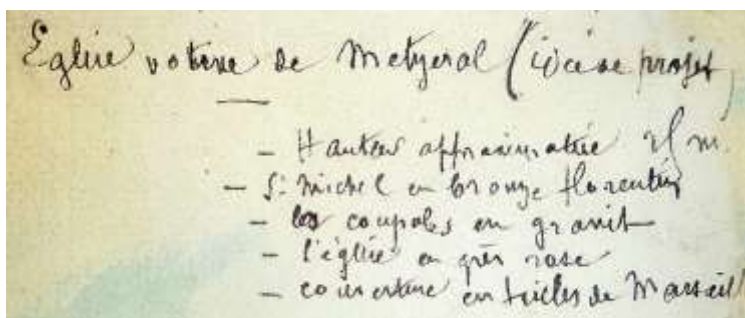 Eglise votive de Metzeral (idée de projet
- Hauteur approximative m.
- St Michel en bronze florentin
- les coupoles en granit
- l'église en grès rose
- couverture en tuiles de Marseil